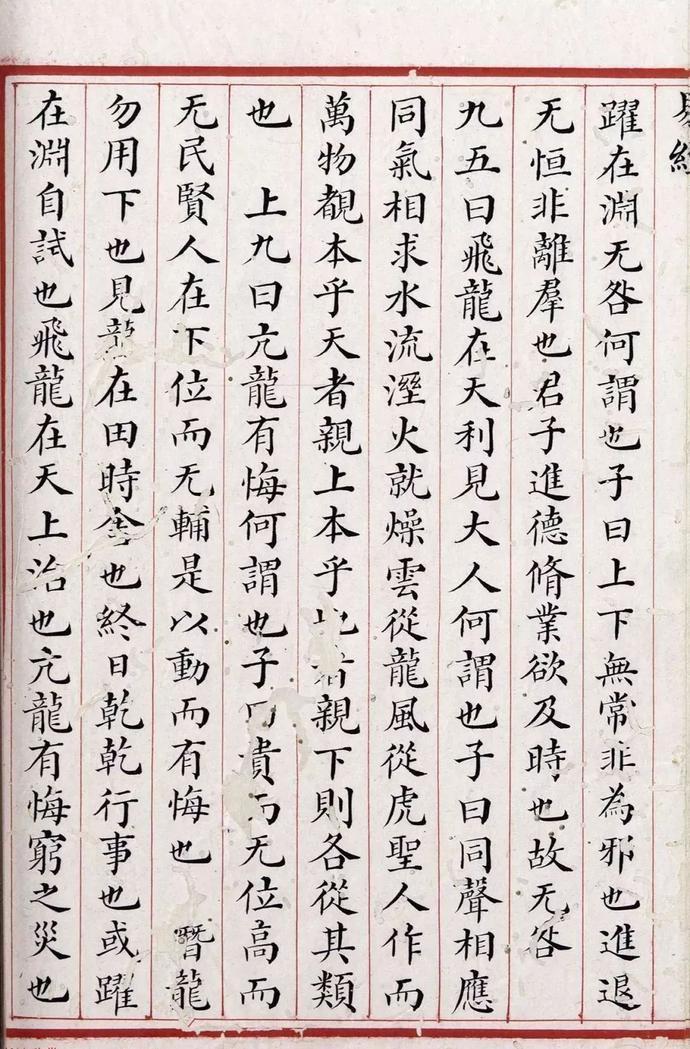 易經
躍在淵无咎何謂也子曰上下無常非為邪也進退
无恒非離羣也君子進德脩業欲及時也故无咎
九五曰飛龍在天利見大人何謂也子曰同聲相應
同氣相求水流溼火就燥雲從龍風從虎聖人作而
萬物覩本乎天者親上本乎地者親下則各從其類
也 上九曰亢龍有悔何謂也子曰貴而无位高而
无民賢人在下位而无輔是以動而有悔也 潛龍
勿用下也見龍在田時舍也終日乾乾行事也或躍
在淵自試也飛龍在天上治也亢龍有悔窮之災也